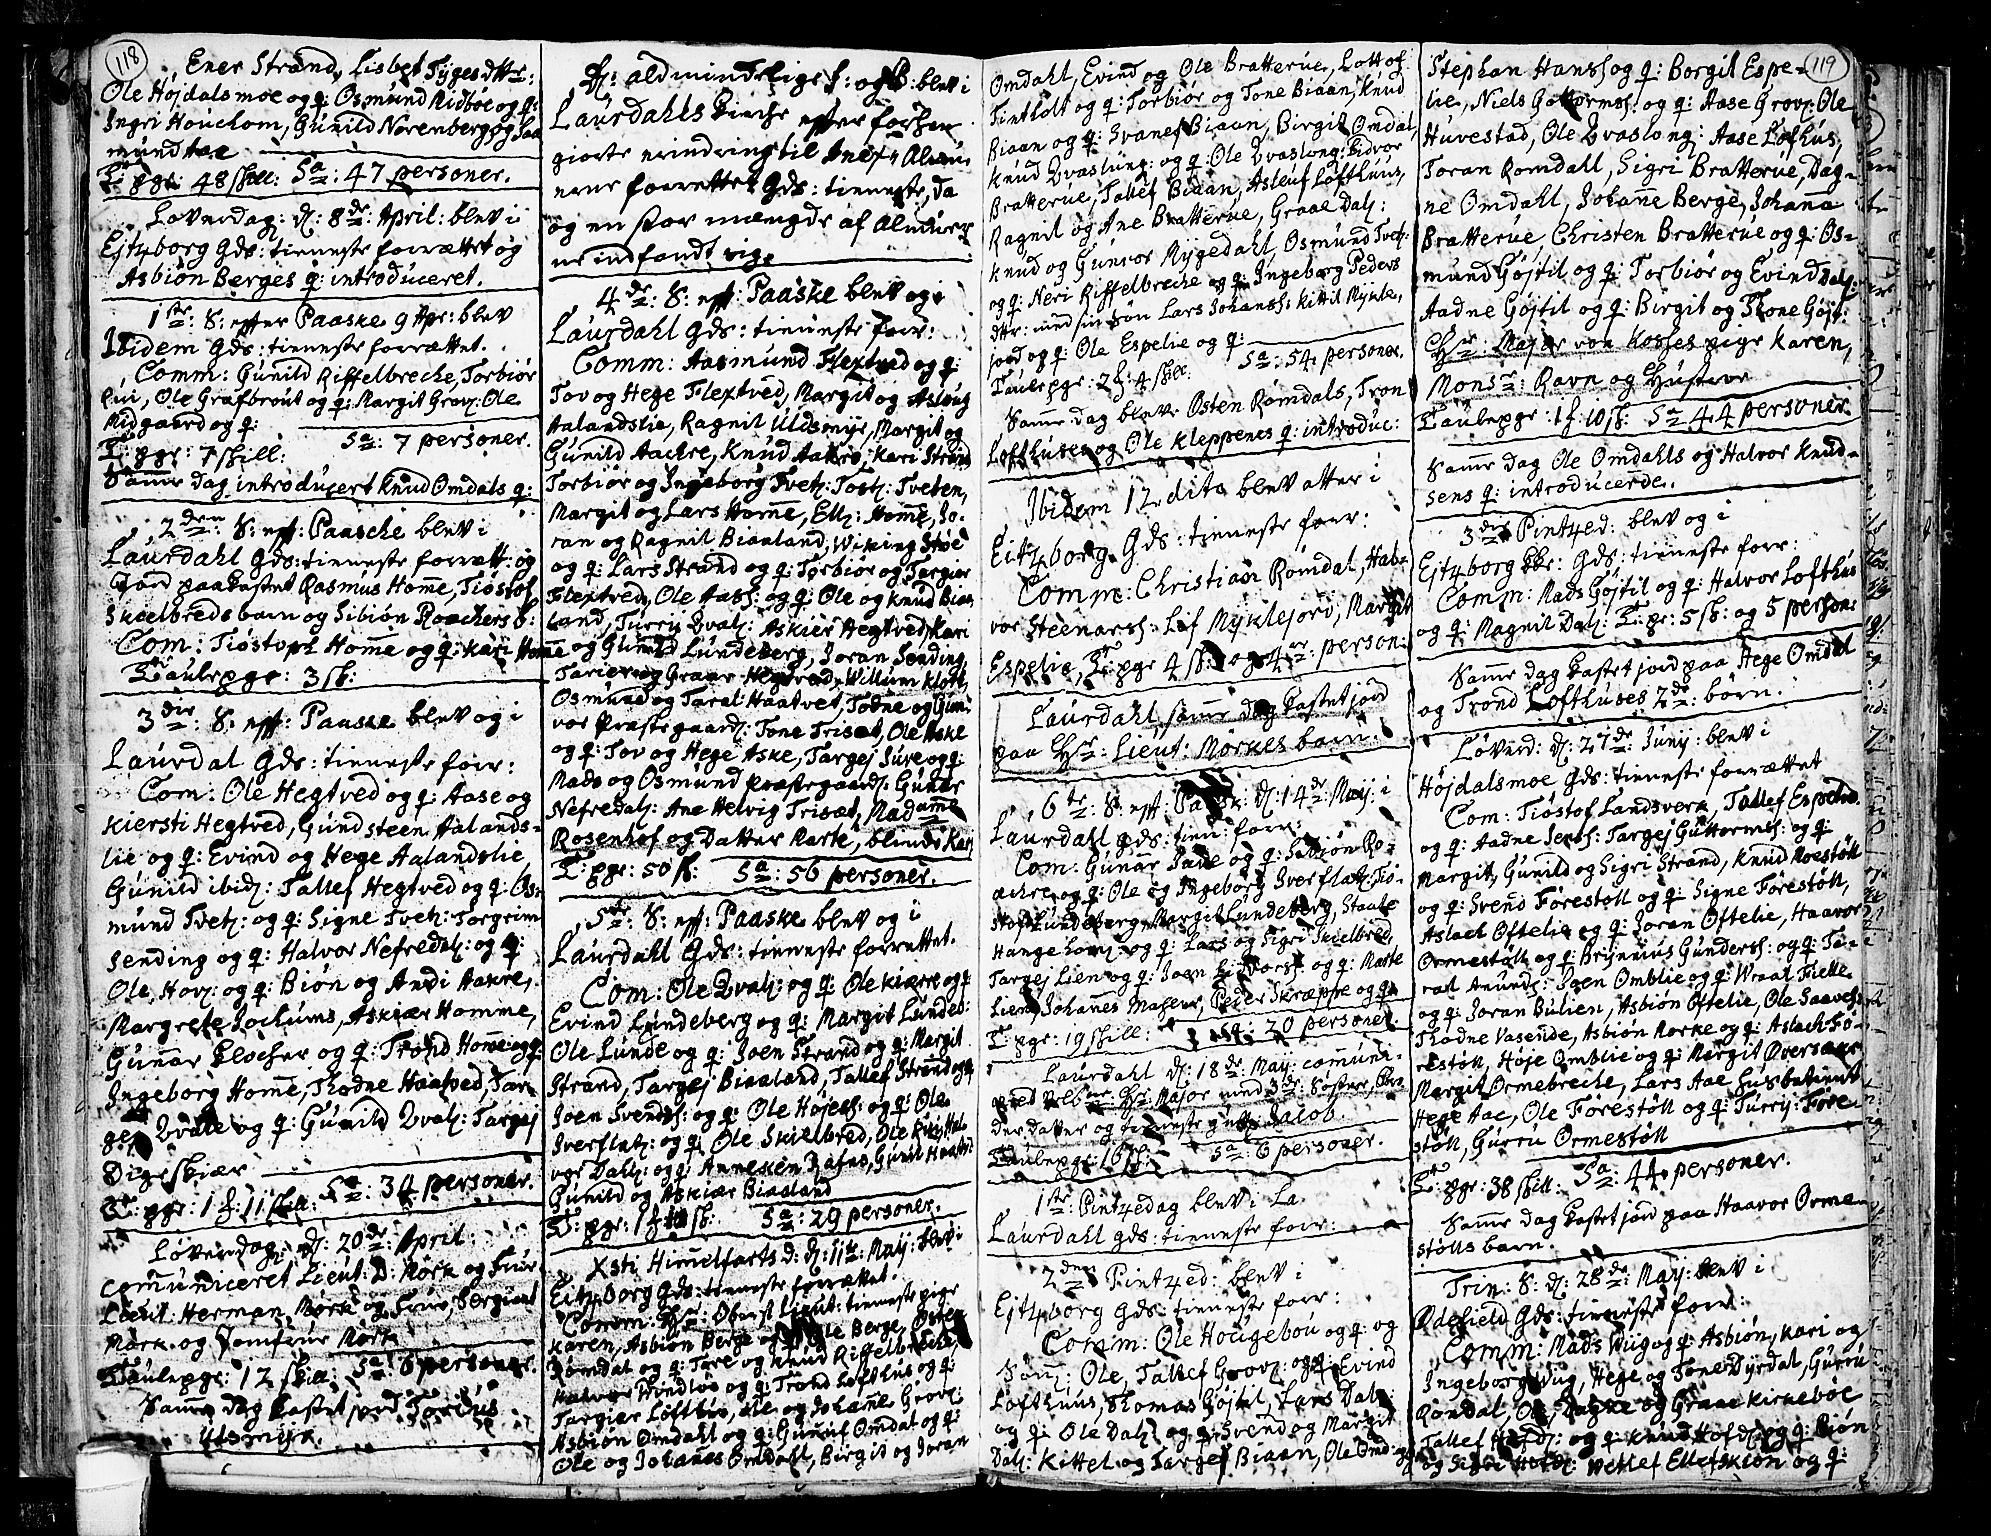 118
Ener Strand, Lisbet Tÿgesdttr:
Ole Höjdalsmoe og q: Osmund Midböe og q:
Ingri Houchom, Gunild Norenberg og Saa
mund Aae
T: pgr: 48 skill: Sa: 47 personer.
Loverdag: d: 8de: April: blev i
Ejtzborg Gds: tienneste forrættet og
Asbiön Berges q: introduceret.
1ste: S: efter Paaske 9 Apr: blev
Ibidem Gds: tienneste forrættet.
Comm: Gunild Riffelbreche, Torbiör
Ole Grafbrout og q: Margit Grov: Ole
Midgaard og q:
T: pgr: 7 skill: Sa: 7 personer.
Samme Dag introducert Knud Omdals q:
2den: S: eft: Paasche blev i
Laurdahl Gds: tienneste forrætt: og
Jord paakastet Rasmus Homme, Tiöstof
Skeelbreds barn og Sibiön Roachers b:
Com: Tiöstoph Homme og q: Kari Homme
Taulepgr: 3 sk:
3die: S: eft: Paaske blev og i
Laurdal Gds: tienneste forr:
Com: Ole Hegtved og q: Aase og
Kiersti Hegtved, Gundsteen Aalands-
lie og q: Evind og Hege Aalandslie,
Gunild ibid: Tallef Hegtved og q: Os-
mund Tvet: og q: Signe Tvet: Torgrim
Sending og q: Halvor Nefredal: og q:
Ole, Hov: og q: Biön og Andi Aakre,
Margrete Jochums, Askiær Homme,
Gunnar Klocher og q: Trond Homme og q:
Ingeborg Homme, Thodne Haatved, Tar-
gej Dvale og q: Gunild Dval: Targej
Digeskiær
T: pgr: 1 f: 11 skill: Sa: 34 personer.
Löverdag: d: 20de: April:
communiceret Lieut: D: Mörk og Frue,
Lieut: Herman Mörk og Frue, Sergiant
Mörk og Jomfrue Mörk
Taulepgr: 12 skill: Sa: 6 personer.
Samme Dag kastet jord
Uldsmyr.
D: aldmindelige f: og B: blev i
Laurdahls Kirche efter forhen
giorte erindring til Annex Almu
nene forrettet Gds: tienneste, da
og en stor mængde af Almuen
ne indfandt sig.
4de: S: eft: Paaske blev og i
Laurdahl Gds: tienneste forr:
Comm: Aasmund Flextved og q:
Tov og Hege Flextved, Margit og Aslaug
Aalandslie, Ragnil Uldsmyr, Margit og
Gunild Aachre, Knud Aakre, Kari Strand
Torbiör og Ingeborg Tvet: Tost: Tveten,
Margit og Lars Homme, Ell: Homme, Jo-
ran og Ragnil Biaaland, Wiking Stöe
og q: Lars Strand og q: Torbiör og Targier
Flextved, Ole Aas: og q: Ole og Knud Biaa
land, Turru Dval: Askier Hegtved, Kari
og Gunild Lundeberg, Joran Sending,
Tarier og Graar Hegtved, Willum Klatt,
Osmund og Taral Haatvet, Todne og Gun-
vor Præstegaard: Tone Triset, Ole Aske
og q: Tov og Hege Aske, Targej Sure og q:
Mads og Osmund Præstegaard: Gunar
Nefredal: Ane Helvig Triset, Madame
Rosenhof og Datter Marte, blinde Kari
T: pgr: 50 sk: Sa: 56 personer.
5te: S: eft: Paaske blev og i
Laurdahl Gds: tienneste forrettet.
Com: Ole Dval: og q: Ole Kiærre og q
Evind Lundeberg og q: Margit Lundeb:
Ole Lunde og q: Joen Strand og q: Margit
Strand, Targej Biaaland, Tallef Strand og q:
Joen Svends: og q: Ole Höjes: og q: Ole
Sverslat: og q: Ole Skielbred, Ole
vor Dal: og q: Anneken Rafns, Gunil Haatv:
Gunild og Askiær Biaaland
T: pgr: 1 f: 10 sk: Sa: 29 personer.
Xsti Himmelfarts d: d: 11te: May: blev i
Ejtzborg Gds: tienneste forrættet.
Comm: Hr: Oberst Lieut: tienneste pige
Karen, Asbiön Berge og q: Ole Berge, Östen
Romdal og q: Tore og Knud Riffelbreche,
Halvor Trendlöe og q: Trond Lofthus og q:
Targier Lofthus, Ole og Johanne Grov:
Asbiön Omdahl og q: Gunuf Omdal og q:
Ole og Johannes Omdahl, Birgit og Joran
Omdahl, Evind og Ole Bratterue, Lottof
Tinthölt og q: Torbiör og Tone Biaan, Knud
Biaan og q: Svanef Biaan, Birgit Omdal,
Knud Dvaslong: og q: Ole Dvaslong: Lidvor
Bratterue, Tallef Biaan, Asleuf Lofthuus,
Ragnil og Ane Bratterue, Graae Dal:
Knud og Gunvor Mygedahl, Osmund Tvet:
og q: Neri Riffelbreche og q: Ingeborg Peders
dttr: med sin Sön Lars Johans: Kittil Mykle-
jord og q: Ole Espelie og q:
Taulepgr: 2 f: 4 skil: Sa: 54 personer.
Samme dag blev Östen Romdals, Tron
Lofthuses og Ole Kleppenes q: introduc:
Ibidem 12 dito blev atter i
Eitzborg Gds: tienneste forr:
Comm: Christian Romdal, Hal-
vor Steenars: Lef Myklejord, Margit
Espelie, T: pgr 4 sk: og 4er: person:
Laurdahl samme dag kastet jord
paa Hr: Lieut: Mörkes barn:
6te: S: eft: Paask: d: 14de: May: i
Laurdahl gds: tien: forr:
Com: Gunar Save og q: Sibiön Ro-
achre og q: Ole og Ingeborg Sverslat: Tiö-
stof Lundeberg, Margit Lundeberg, Staale
Hange Lom: og q: Lars og Sigri Skielbred,
Targej Lien og q: Joen Lidvors: og q: Marte
Lien, Johannes Maseur, Peder Skræppe og q:
T: pgr: 19 skill: Sa: 20 personer.
Laurdahl d: 18de: May: communi-
ceret Hr: Major med 3de: Söstre,
der datter og tienneste gut: Jacob.
Taulepgr: 16 sk: Sa: 6 personer.
1ste: Pintzedag blev i La.
Laurdahl gds: tienneste forr:
2den Pintzed: blev i
Ejtzborg Gds: tienneste forr:
Comm: Ole Hougebou og q: og
Sönn: Ole, Tallef Grov: og q: Evind
Lofthuus, Thomas Göjtil, Lars Dal:
og q: Ole Dal: og q: Svend og Margit
Dal: Kittel og Targej Biaan, Ole Omd: og q
119
Stephan Hans: og q: Borgil Espe-
lie, Niels Gottorms: og q: Aase Grov: Ole
Huvestad, Ole Dvaslong: Aase Lofthus,
Toran Romdahl, Sigri Bratterue, Dag-
ne Omdahl, Johanne Berge, Johanna
Bratterue, Christen Bratterue og q: Os-
mund Göjtil og q: Torbiör og Evind Dal:
Aadne Göjtil og q: Birgit og Thone Göjt:
Hr: Major von Kosses pige Karen,
Monsr: Ravn og Hustrue
Taulepgr: 1 f: 10 sk: Sa 44 personer.
Samme Dag Ole Omdahls og Halvor Knud-
sens q: introducerde.
3die Pintzed: blev og i
Ejtzborg Kr: Gds: tienneste forr:
Comm: Mads Göjtil og q: Halvor Lofthus
og q: Magnil Dal: T: pr: 5 sk: og 5 person:
Samme dag kastet jord paa Hege Omdal
og Trond Lofthuses 2de: börn:
Löverd: d: 27de: Junij: blev i
Höjdalsmoe Gds: tienneste forrættet
Com: Tiöstof Landsverk, Tallef Espelie
og q: Aadne Jens: Targej Guttorms: og q:
Margit, Gunild og Sigri Strand, Knud Moestöll
og q: Svend Förestöll og q: Signe Förestöll,
Aslach Oftelie og q: Joran Oftelie, Haavor
Ormestöll og q: Brynnius Gunders: og q: Ta-
rad Amund: Joen Omblie og q: Wraal Tvelle
og q: Joran Bulien, Asbiön Oftelie, Ole Saaves:
Thodne Vasende, Asbiön Morke og q: Aslach Fö-
restöll, Höje Omblie og q: Margit Oversaker,
Margit Ormebreche, Lars Aae
Hege Aae, Ole Förestöll og q: Turru Före-
stöll, Gurru Ormestöll
T: pgr: 38 skill: Sa: 44 personer.
Samme Dag kastet jord paa Haavor Orme-
stölls barn.
Trin: S: d: 28de: May: blev i
Ödefield Gds: tienneste forr:
Comm: Mads Wiig og q: Asbiön, Kari og
Ingeborg Wiig, Hege og Tone Dyrdal, Gurru
Rondal, Ole, Dagne og Graae Kirkeböe
Tallef Hofd: og q: Knud Hofd: og q: Biön
og Sigri Hofd: Wetlef Ellefskiön og q: